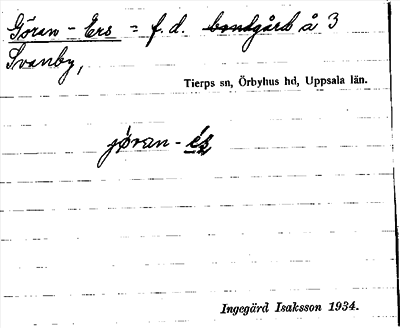 Göran-Ers = f.d. bondgård å 3
Svanby,
Tierps sn, Örbyhus hd, Uppsala län.
jöran-és
Ingegärd Isaksson 1934.